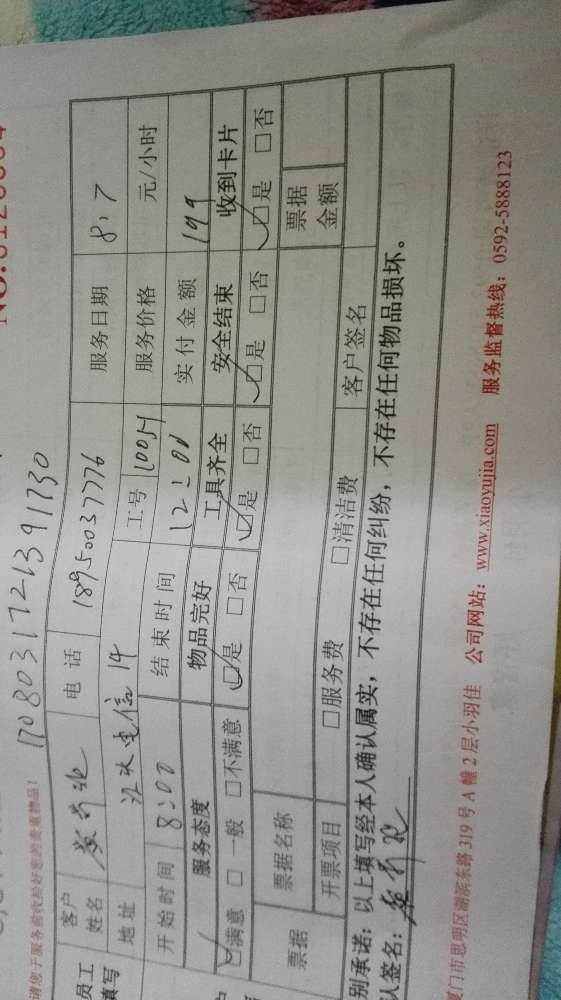 1708031721391730
请您于服务前收拾好您的贵重物品！
员工
填写
客户
姓名
电话 18950037776 服务日期 8.7
地址 江头电信 工号 服务价格 元/小时
开始时间 8:00 结束时间 12:00 实付金额 199
服务态度 物品完好 工具齐全 安全结束 收到卡片
☑满意 □一般 □不满意 ☑是 □否 ☑是 □否 ☑是 □否 ☑是 □否
票据 票据名称 票据
金额
开票项目 □服务费 □清洁费 客户签名
别承诺：以上填写经本人确认属实，不存在任何纠纷，不存在任何物品损坏。
认签名：
门市思明区湖滨东路 319 号 A 幢 2 层小羽佳 公司网站：www.xiaoyujia.com 服务监督热线：0592-5888123